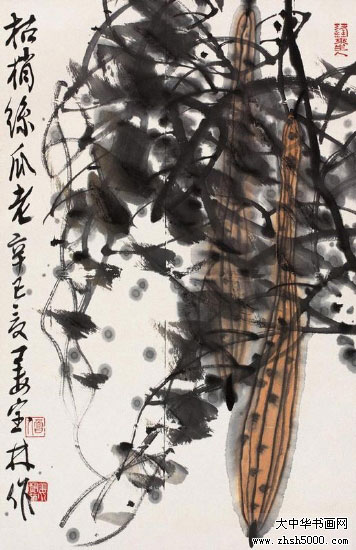 枯梢絲瓜老辛巳夏姜宝林作
大中华书画网
www.zhsh5000.com